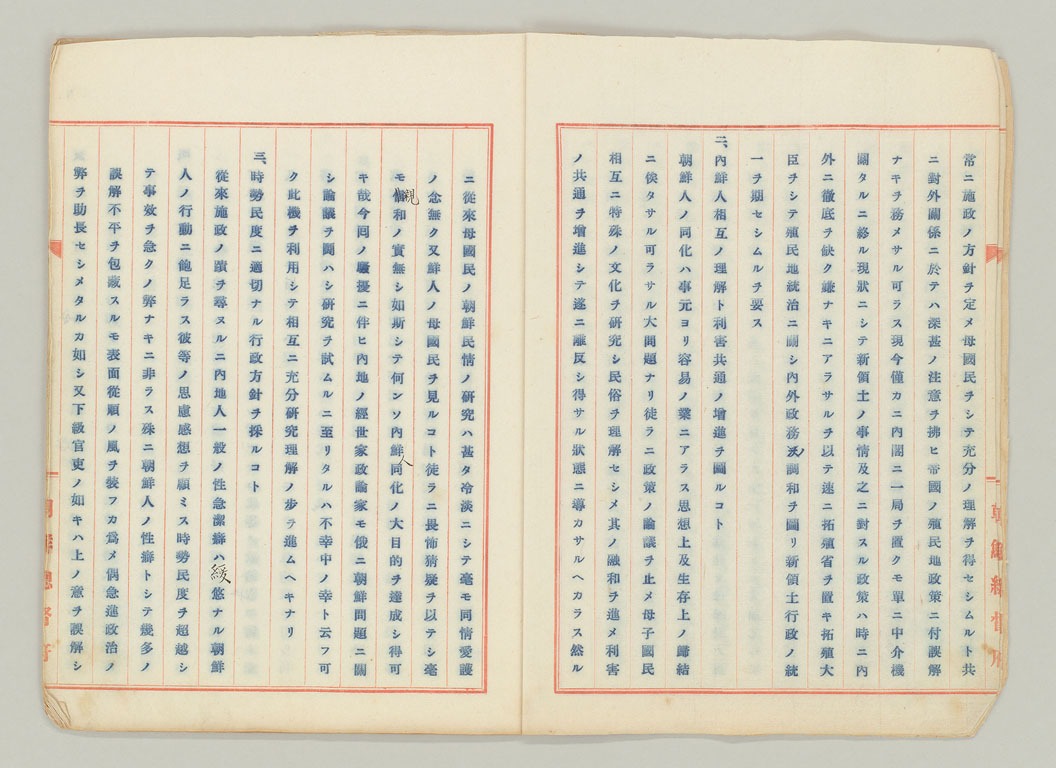 常ニ施政ノ方針ヲ定メ母國民ヲシテ充分ノ理解ヲ得セシムルト共
ニ對外關係ニ於テハ深甚ノ注意ヲ拂ヒ帝國ノ殖民地政策ニ付誤解
ナキヲ務メサル可ラス現今僅カニ內閣ニ一局ヲ置クモ單ニ中介機
關タルニ終ル現狀ニシテ新領土ノ事情及之ニ對スル政策ハ時ニ內
外ニ徹底ヲ缺ク嫌ナキニアラサルヲ以テ速ニ拓殖省ヲ置キ拓殖大
臣ヲシテ殖民地統治ニ關シ內外政務ノ調和ヲ圖リ新領土行政ノ統
一ヲ期セシムルヲ要ス
二、內鮮人相互ノ理解ト利害共通ノ增進ヲ圖ルコト
朝鮮人ノ同化ハ事元ヨリ容易ノ業ニアラス思想上及生存上ノ歸結
ニ俟タサル可ラサル大問題ナリ徒ラニ政策ノ論議ヲ止メ母子國民
相互ニ特殊ノ文化ヲ研究シ民俗ヲ理解セシメ其ノ融和ヲ進メ利害
ノ共通ヲ增進シテ遂ニ離反シ得サル狀態ニ導カサルヘカラス然ル
朝鮮總督府
ニ從來母國民ノ朝鮮民情ノ硏究ハ甚タ冷淡ニシテ毫モ同情愛護
ノ念無ク又鮮人ノ母國民ヲ見ルコト徒ラニ畏怖猜疑ヲ以テシ毫
モ親和ノ實無シ如斯シテ何ンソ內鮮人同化ノ大目的ヲ達成シ得可
キ哉今回ノ騷擾ニ伴ヒ內地ノ經世家政論家モ俄ニ朝鮮問題ニ關
シ論議ヲ鬪ハシ硏究ヲ試ムルニ至リタルハ不幸中ノ幸ト云フ可
ク此機ヲ利用シテ相互ニ充分研究理解ノ步ヲ進ムヘキナリ
三、時勢民度ニ適切ナル行政方針ヲ採ルコト
從來施政ノ蹟ヲ尋ヌルニ內地人一般ノ性急潔癖ハ緩悠ナル朝鮮
人ノ行動ニ飽足ラス彼等ノ思慮感想ヲ顧ミス時勢民度ヲ超越シ
テ事效ヲ急クノ弊ナキニ非ラス殊ニ朝鮮人ノ性癖トシテ幾多ノ
誤解不平ヲ包藏スルモ表面從順ノ風ヲ裝フカ爲メ偶急進政治ノ
弊ヲ助長セシメタルカ如シ又下級官吏ノ如キハ上ノ意ヲ誤解シ
朝鮮總督府